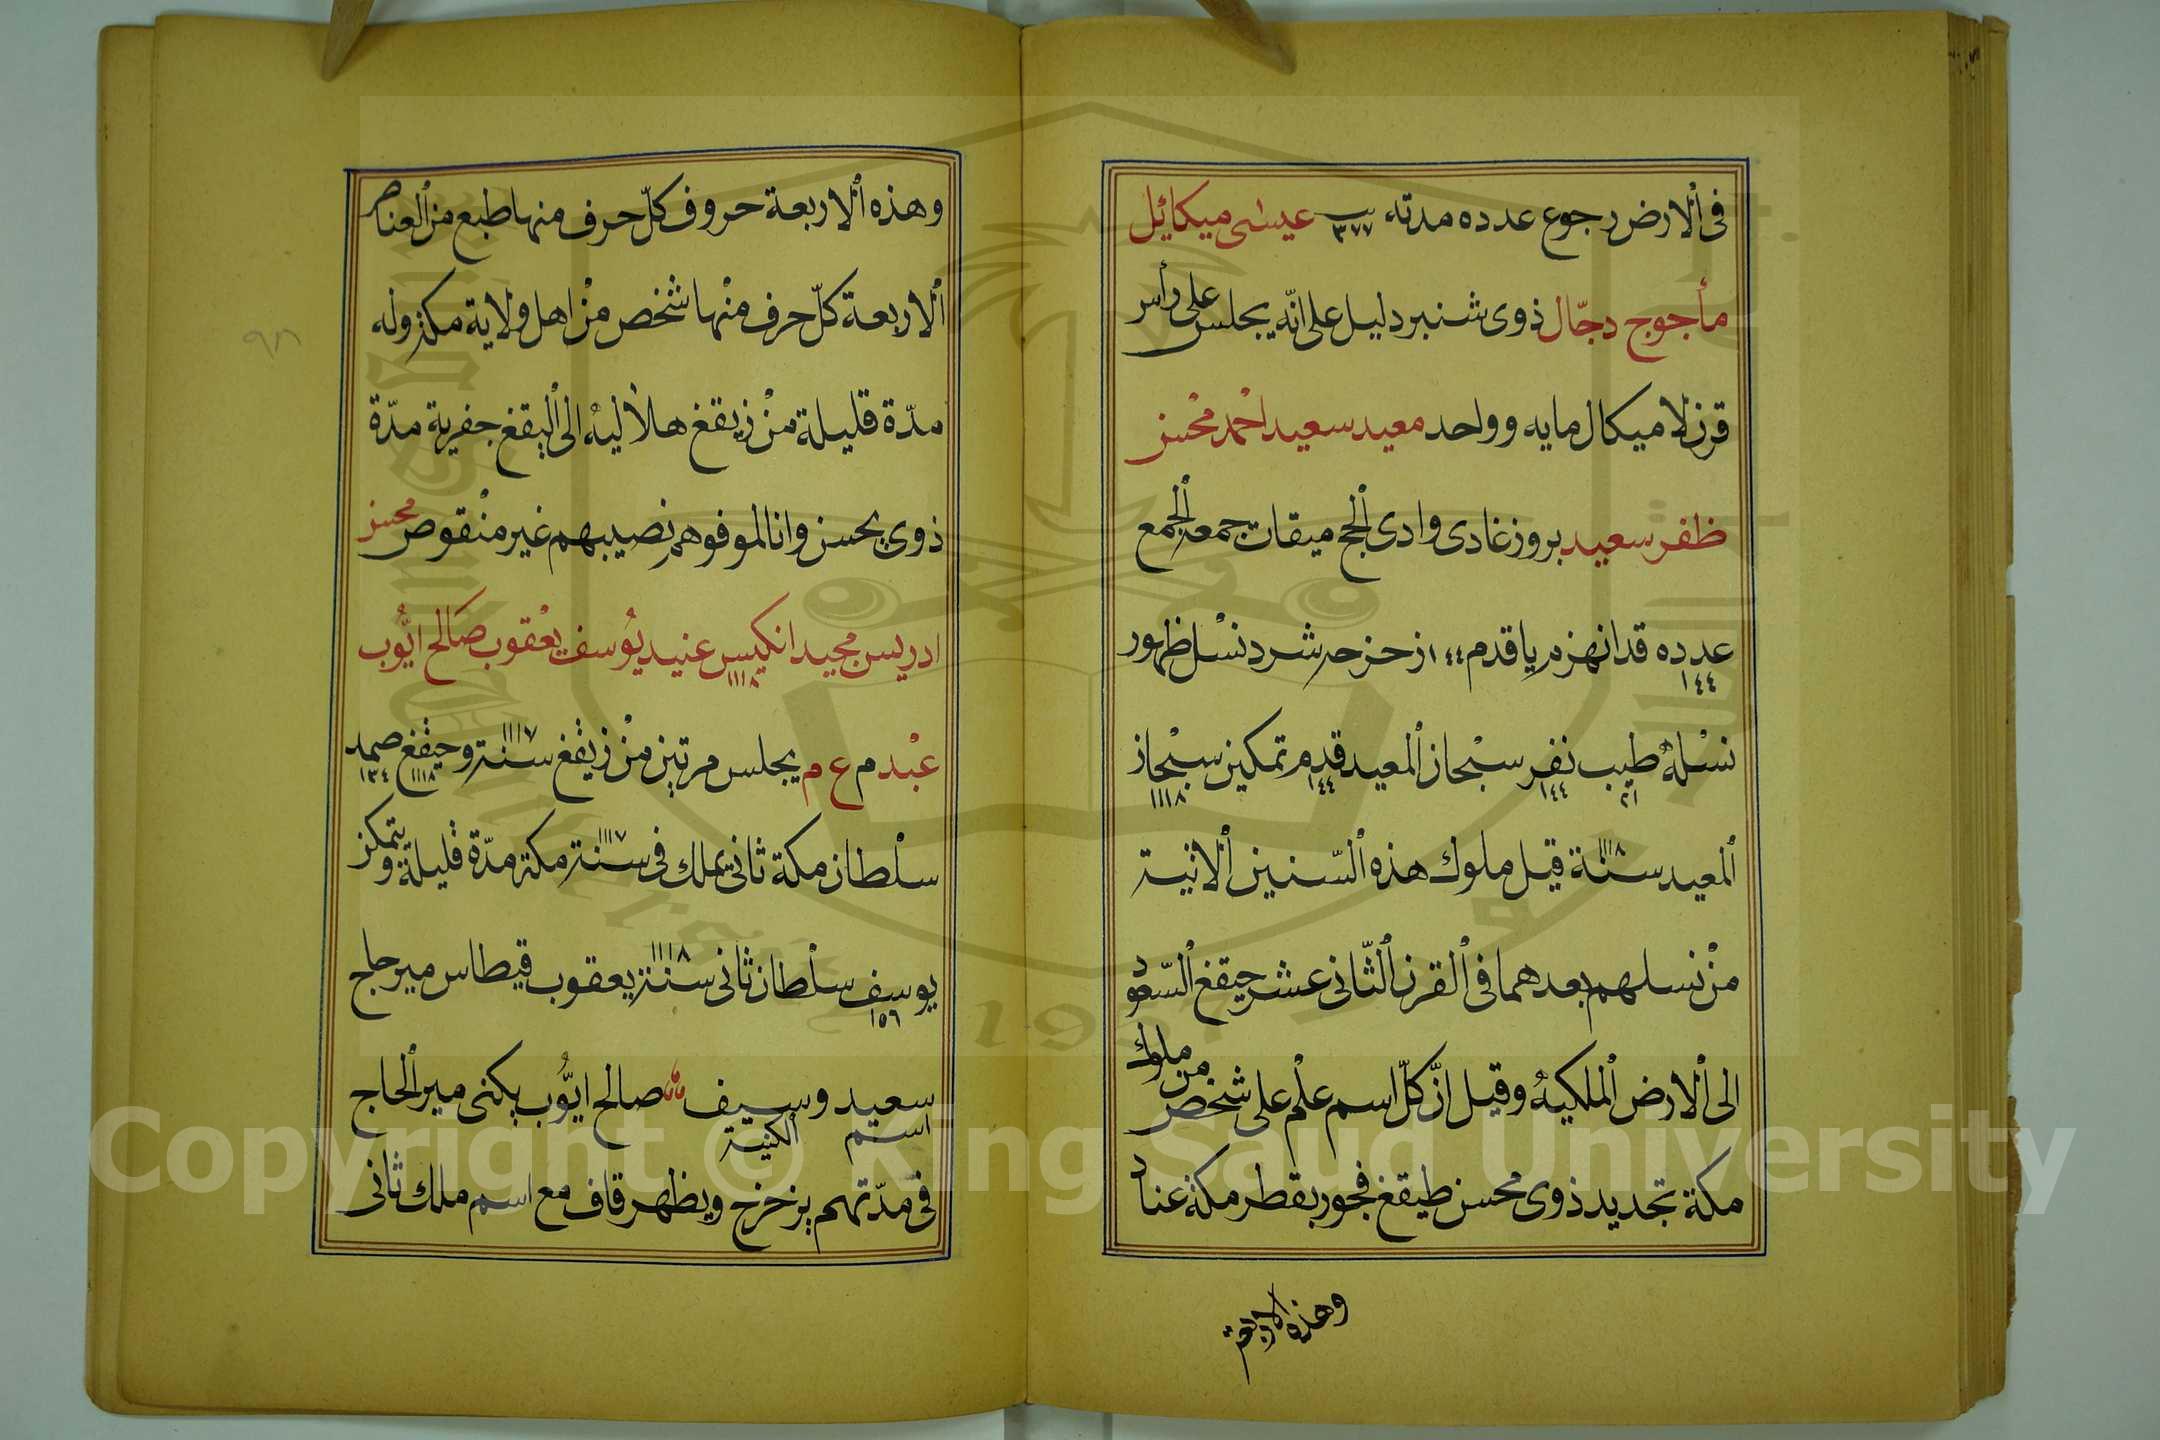 في ألارض رجوع عدده مدته ٣٧٧ عيسى ميكائيل
مأجوج دجّال ذوى شنبر دليل على انّه يجلس على رأس
قرن لا ميكال مايه وواحد معيد سعيد احمد محسن
ظفر سعيد بروز غادى وادى ألحج ميقات جمعه ألجمع
عدده قد انهزم ياقدم ١٤٤ شرد نسل ظهور
١٤٤
نسله طيب نفر سبحان ألمعيد قدم تمكين سبحان
٢١ ١٤٤ ١٤٤ ١١١٨
ألمعيد سنة ١١١٨ قيل ملوك هذه ألسّنين ألاتية
من نسلهم بعدهما في ألقرن ألثّانى عشر حيقغ ألسّعود
الى ألارض ألملكيه وقيل انّ كلّ اسم علم على شخص من ملوك
مكة تجديد ذوى محسن طيقغ فجور بقطر مكة عناد
وهذه الاربعة
وهذه ألاربعة حروف كلّ حرف منها طبع من ألعناصر
ألاربعة كلّ حرف منها شخص من اهل ولاية مكة وله
مدّة قليلة من زيقغ هلاليه الى أليقغ جفرية مدّة
ذوى بحسن وانا لموفوهم نصيبهم غير منقوص محسن
ادريس مجيد انكيس عنيد يوسف يعقوب صالح ايّوب
١١١٨
عبد م ع م يجلس مرتين من زيقغ سنة ١١١٧ وحيقغ صمد
١١١٨ ١٣٤
سلطان مكة ثانى يملك في سنة ١١١٧ مكة مدّة قليلة ويتمكن
يوسف سلطان ثانى سنة ١١١٨ يعقوب قيطاس ميرحاج
١٥٦
سعيد وسيف صالح ايّوب بكنى مير ألحاج
اسم ألكنية
في مدّتهم ويظهر قاف مع اسم ملك ثانى
٩٨
Copyright © King Saud University
1957